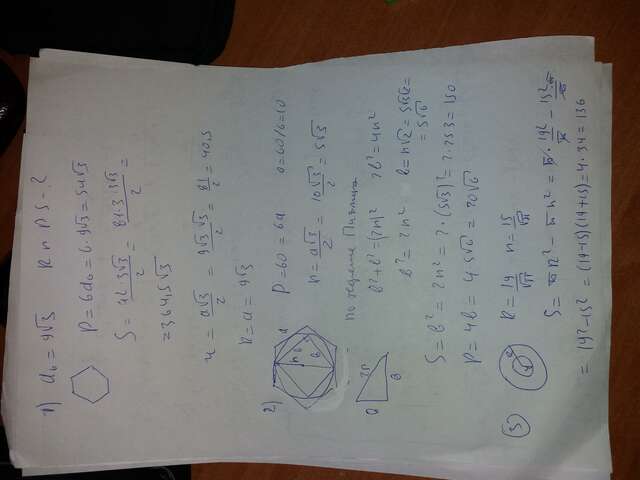 1) a₆ = 9√3 R r P S - ?
P = 6a₆ = 6·9√3 = 54√3
S = a²·3√3/2 = 81·3·3√3/2 =
= 364,5√3
r = a√3/2 = 9√3·√3/2 = 81/2 = 40,5
R = a = 9√3
2) P = 60 = 6a a = 60/6 = 10
r = a√3/2 = 10√3/2 = 5√3
по теореме Пифагора
b² + b² = (2r)² 2b² = 4r²
b² = 2r² b = r√2 = 5√3·√2 =
= 5√6
S = b² = 2r² = 2·(5√3)² = 2·25·3 = 150
P = 4b = 4·5√6 = 20√6
3) R = 19/√π r = 15/√π
S = πR² - πr² = π·19²/π - 15²π/π
= 19² - 15² = (19-15)(19+15) = 4·34 = 136